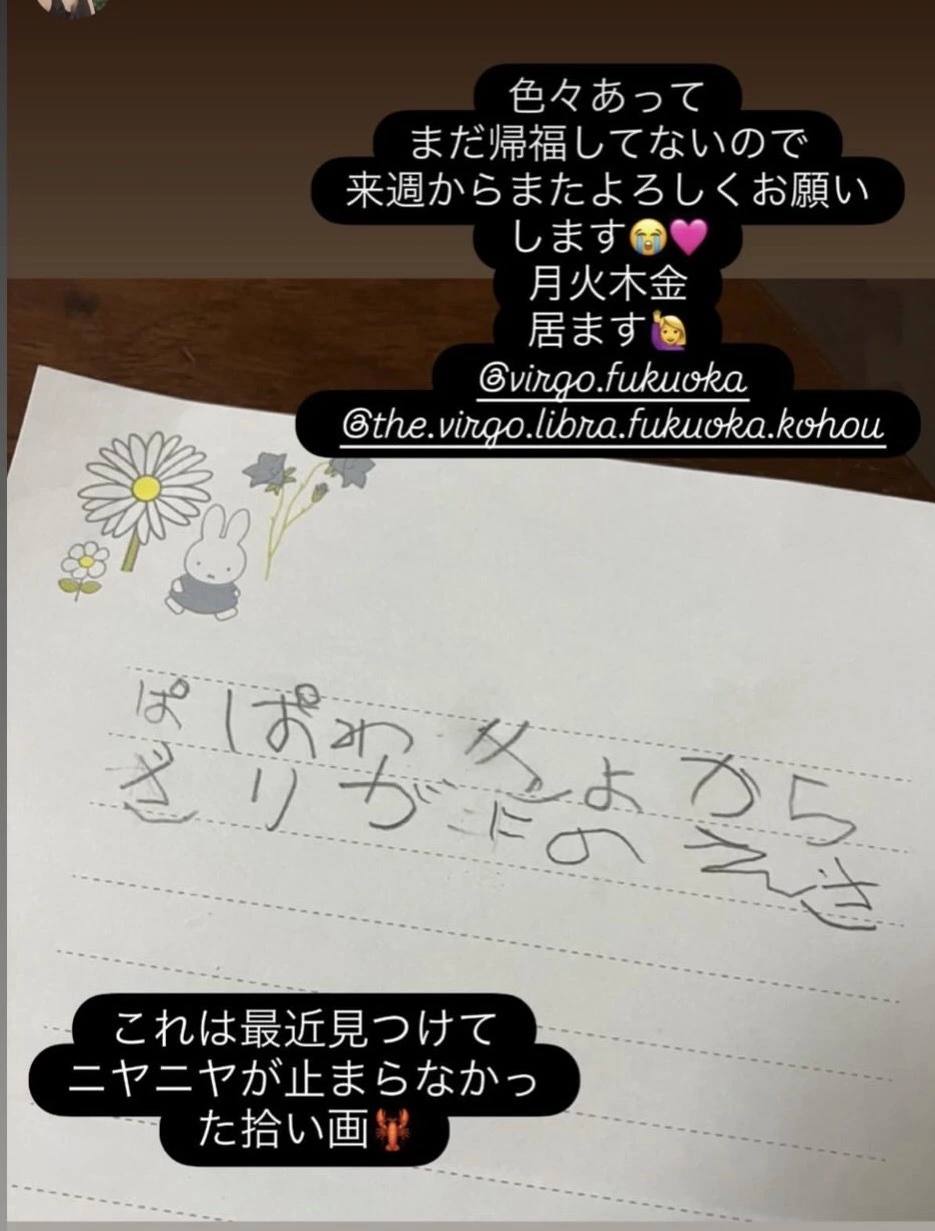 色々あって
まだ帰福してないので
来週からまたよろしくお願い
します😭🩷
月火木金
居ます🙋‍♀️
@virgo.fukuoka
@the.virgo.libra.fukuoka.kohou
ぱぱわ きょ から
ざりがにのえさ
これは最近見つけて
ニヤニヤが止まらなかっ
た拾い画🦞